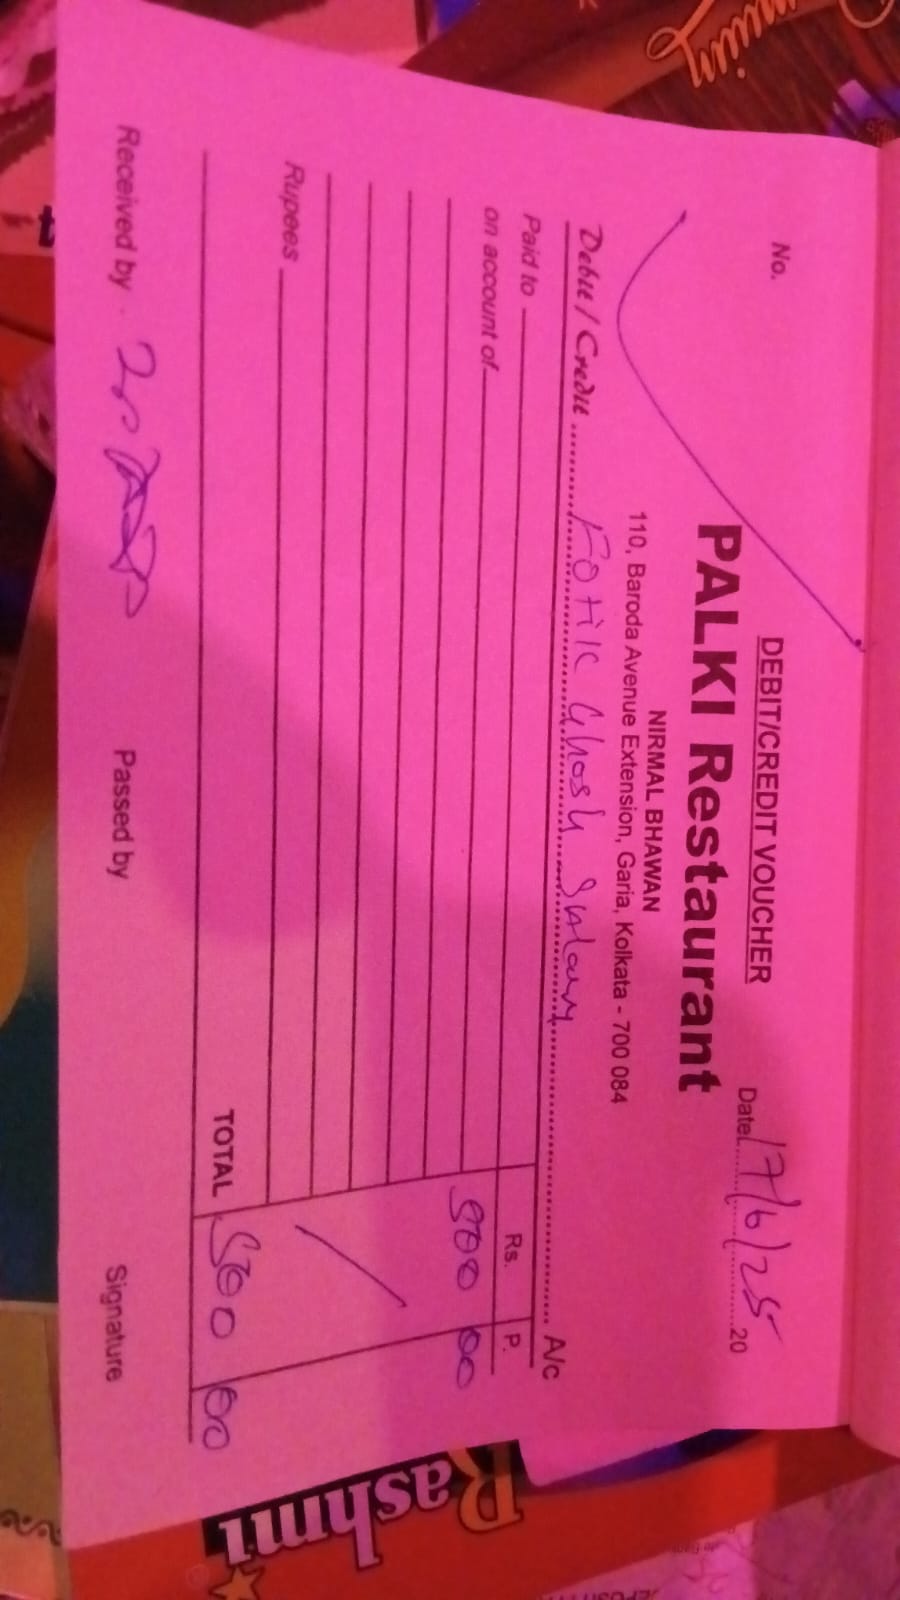 DEBIT/CREDIT VOUCHER
No.
Date 17/6/25 20
PALKI Restaurant
NIRMAL BHAWAN
110, Baroda Avenue Extension, Garia, Kolkata - 700 084
Debit / Credit Fotik Ghosh Salary A/c
Paid to
Rs. P.
on account of
500 00
Rupees
TOTAL 500 00
Received by
Passed by
Signature
Rashmi